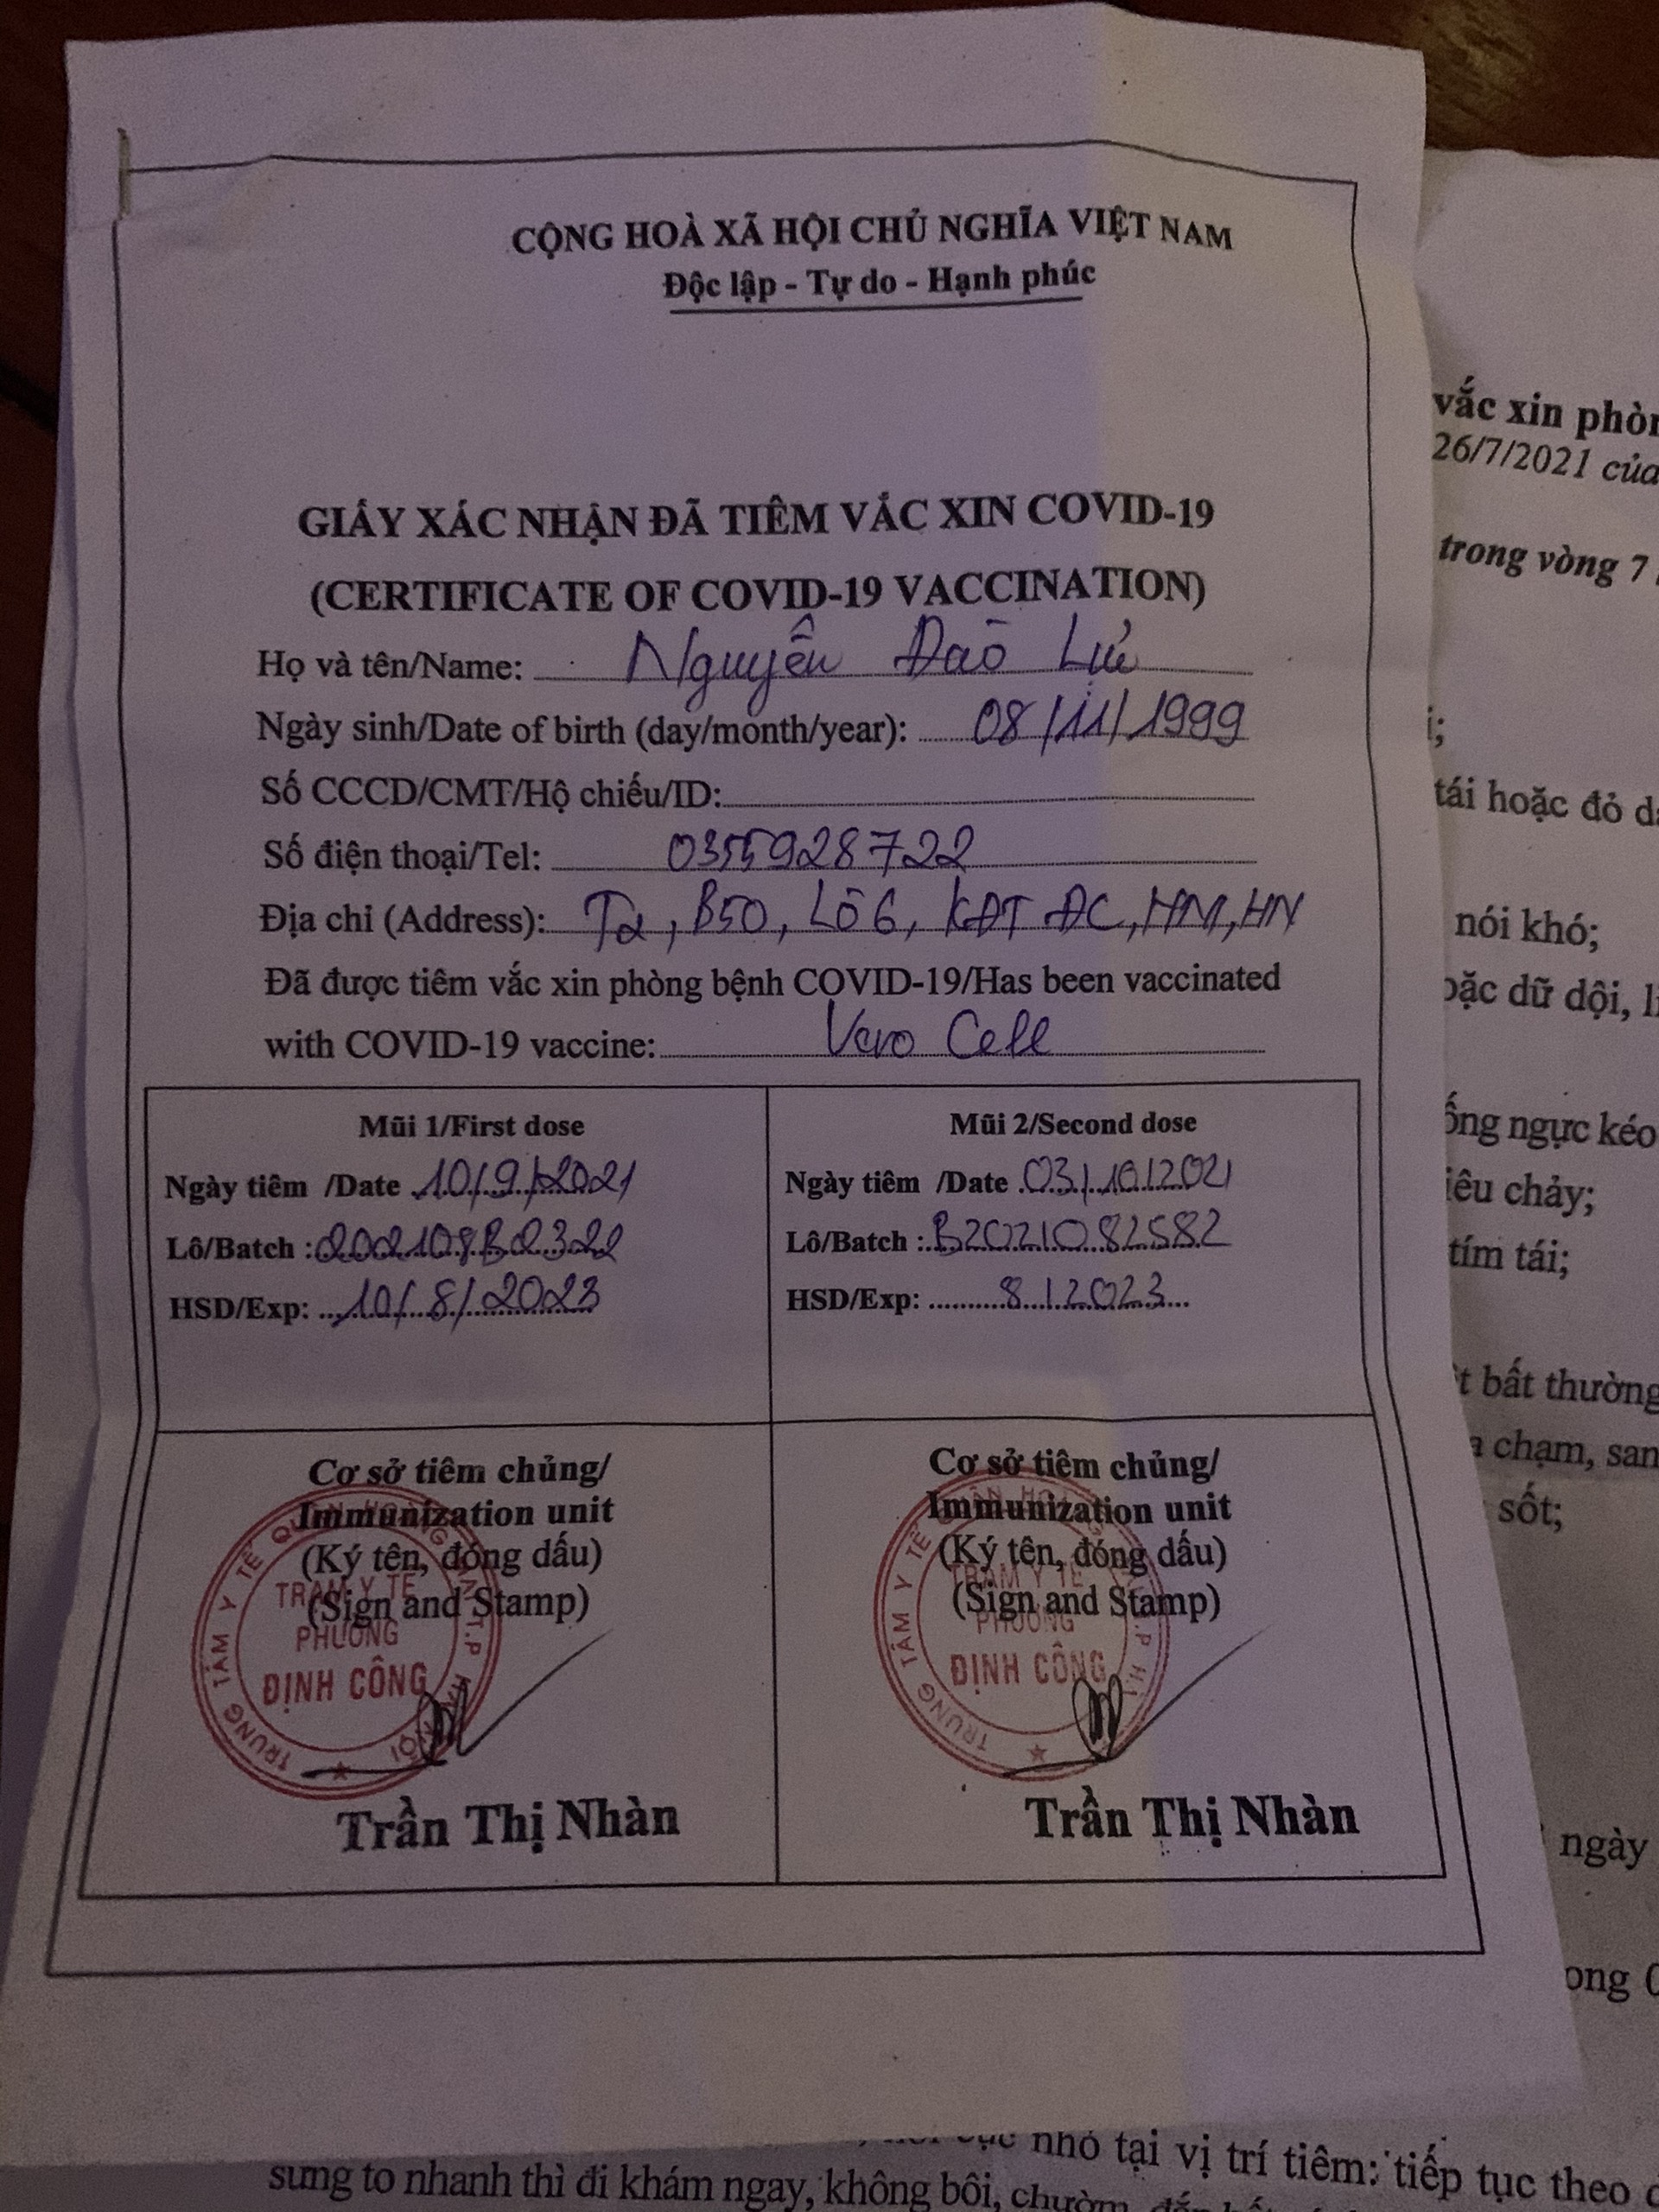 CỘNG HOÀ XÃ HỘI CHỦ NGHĨA VIỆT NAM
Độc lập - Tự do - Hạnh phúc
GIẤY XÁC NHẬN ĐÃ TIÊM VẮC XIN COVID-19
(CERTIFICATE OF COVID-19 VACCINATION)
Họ và tên/Name: Nguyễn Đào
Ngày sinh/Date of birth (day/month/year): 08/11/1999
Số CCCD/CMT/Hộ chiếu/ID:
Số điện thoại/Tel: 0355928722
Địa chỉ (Address): T2, B50, Lô 6, KĐT ĐC, HM, HN
Đã được tiêm vắc xin phòng bệnh COVID-19/Has been vaccinated
with COVID-19 vaccine: Vero Cell
Mũi 1/First dose
Ngày tiêm /Date 10/9/2021
Lô/Batch : 202108B2322
HSD/Exp: 10/8/2023
Cơ sở tiêm chủng/
Immunization unit
(Ký tên, đóng dấu)
(Sign and Stamp)
TRUNG TÂM Y TẾ QUẬN HOÀNG MAI T.P HÀ NỘI
TRẠM Y TẾ
PHƯỜNG
ĐỊNH CÔNG
Trần Thị Nhàn
Mũi 2/Second dose
Ngày tiêm /Date 03/10/2021
Lô/Batch : B2021082582
HSD/Exp: 8/2023
Cơ sở tiêm chủng/
Immunization unit
(Ký tên, đóng dấu)
(Sign and Stamp)
TRUNG TÂM Y TẾ QUẬN
TRẠM Y TẾ
PHƯỜNG
ĐỊNH CÔNG
Trần Thị Nhàn
vắc xin phòn
26/7/2021 của
trong vòng 7
i;
tái hoặc đỏ da
nói khó;
oặc dữ dội, li
ống ngực kéo
iêu chảy;
tím tái;
t bất thường
a chạm, san
sốt;
ngày
ong 0
cục nhỏ tại vị trí tiêm: tiếp tục theo d
sưng to nhanh thì đi khám ngay, không bôi, chườm, đắp